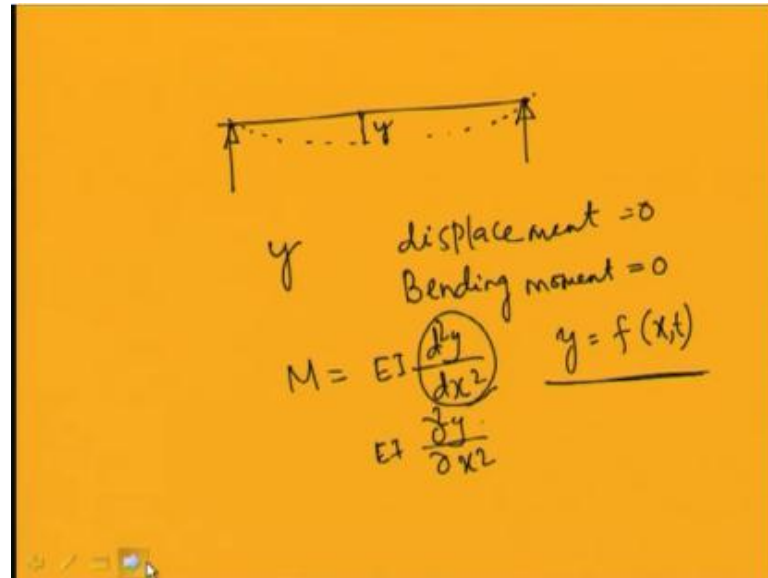 y
y displacement = 0
Bending moment = 0
M = EI d²y/dx² y = f(x,t)
EI ∂²y/∂x²